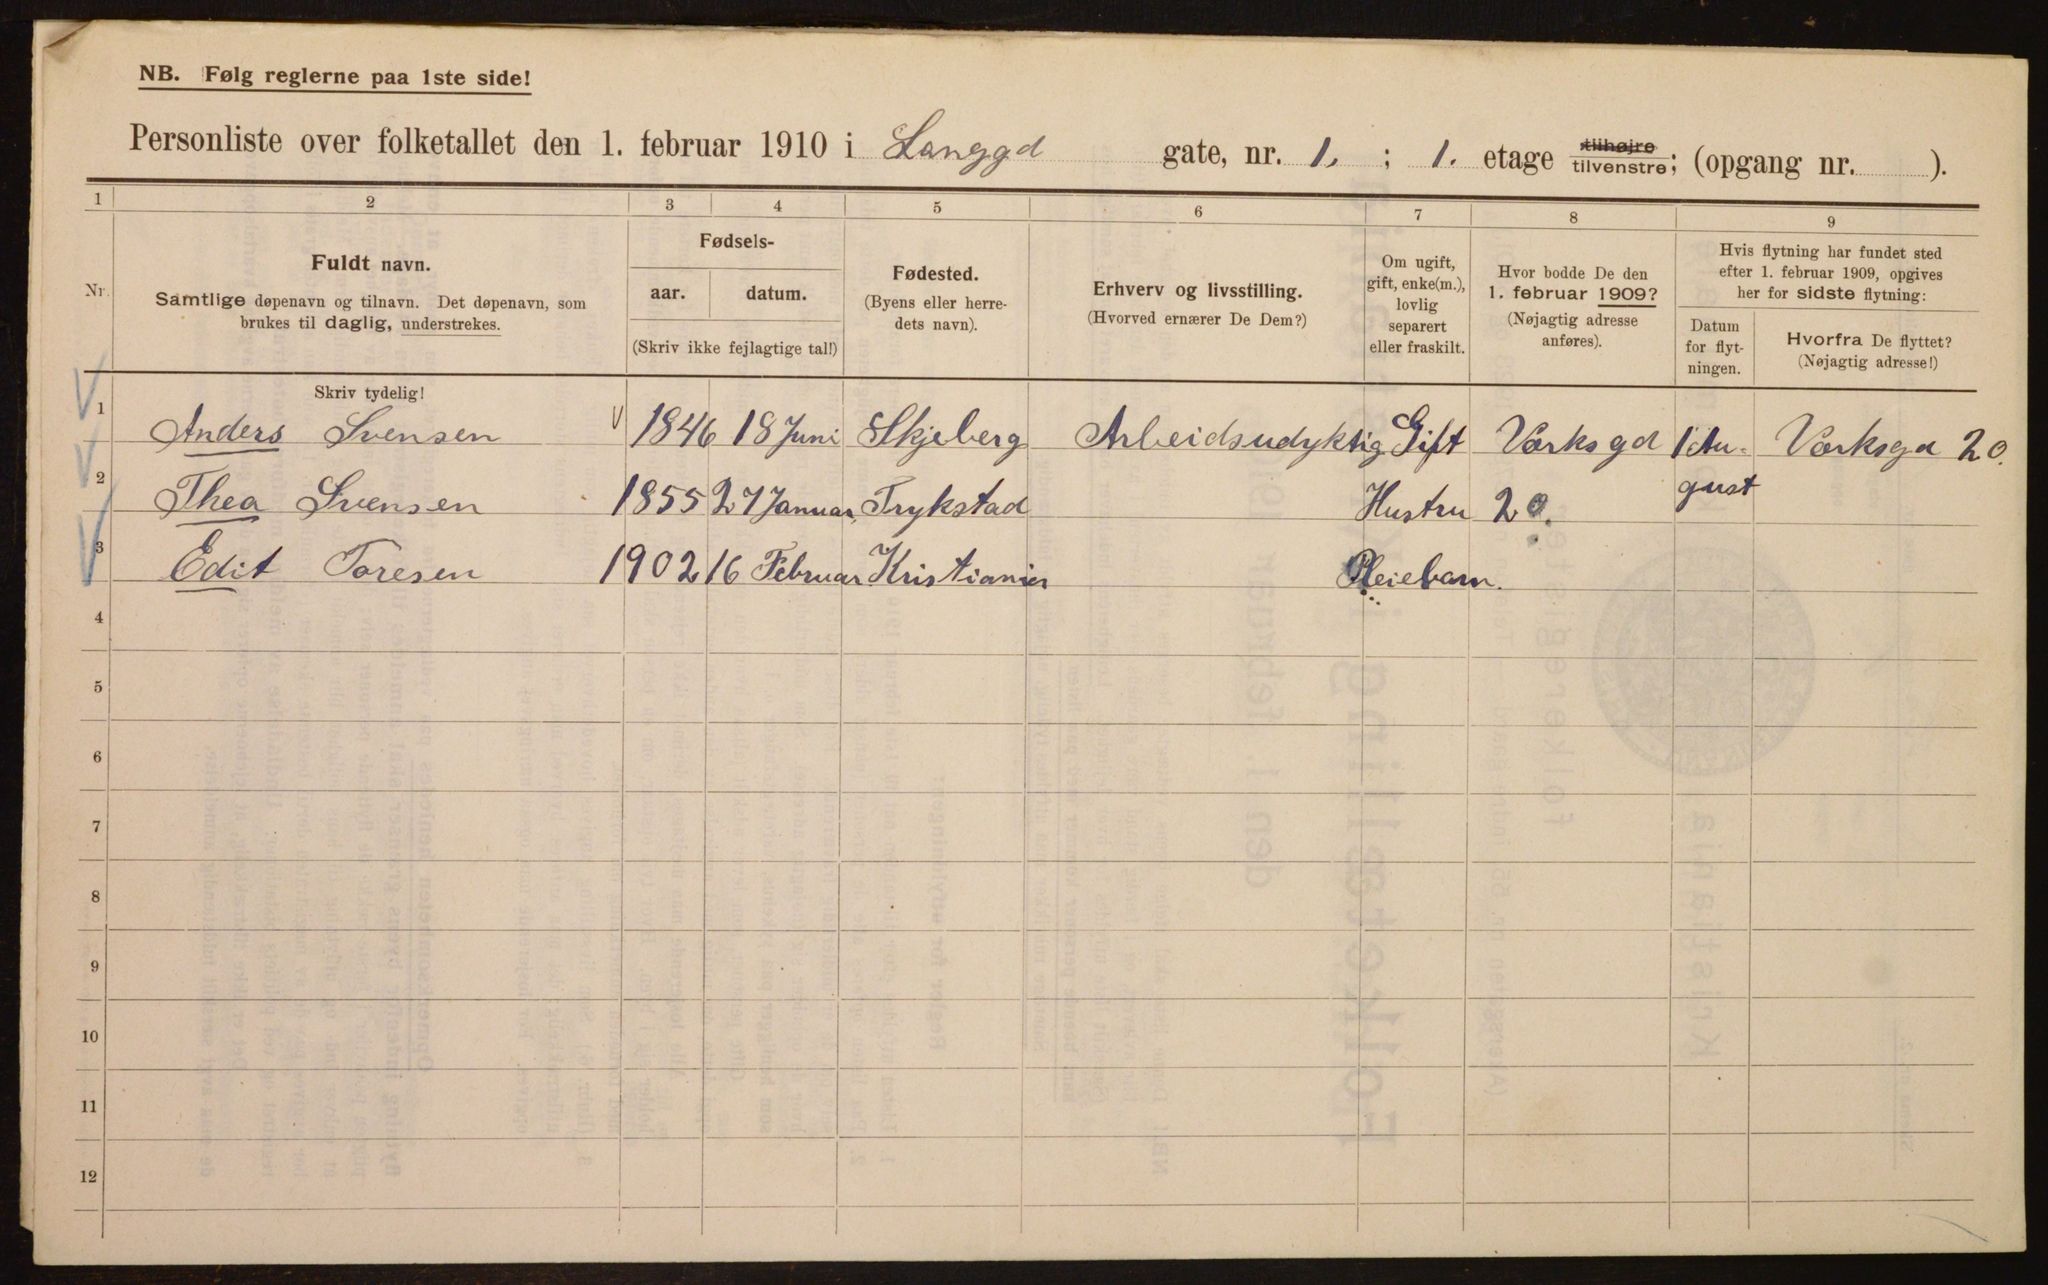 NB. Følg reglerne paa 1ste side!
Personliste over folketallet den 1. februar 1910 i Langgd gate, nr. 1. ; 1. etage tilhøjre tilvenstre; (opgang nr. ).
1 2 3 4 5 6 7 8 9
Nr.
Fuldt navn.
Samtlige døpenavn og tilnavn. Det døpenavn, som
brukes til daglig, understrekes.
Skriv tydelig!
Fødsels-
aar. datum.
(Skriv ikke fejlagtige tal!)
Fødested.
(Byens eller herre-
dets navn).
Erhverv og livsstilling.
(Hvorved ernærer De Dem?)
Om ugift,
gift, enke(m.),
lovlig
separert
eller fraskilt.
Hvor bodde De den
1. februar 1909?
(Nøjagtig adresse
anføres).
Hvis flytning har fundet sted
efter 1. februar 1909, opgives
her for sidste flytning:
Datum
for flyt-
ningen.
Hvorfra De flyttet?
(Nøjagtig adresse!)
1 Anders Svensen 1846 18 Juni Skjeberg Arbeidsudyktig Gift Værksgd 1 Au- Værksgd 20.
2 Thea Svensen 1855 27 Januar Trykstad Hustru 20. gust
3 Edit Toresen 1902 16 Februar Kristiania Pleiebarn.
4
5
6
7
8
9
10
11
12